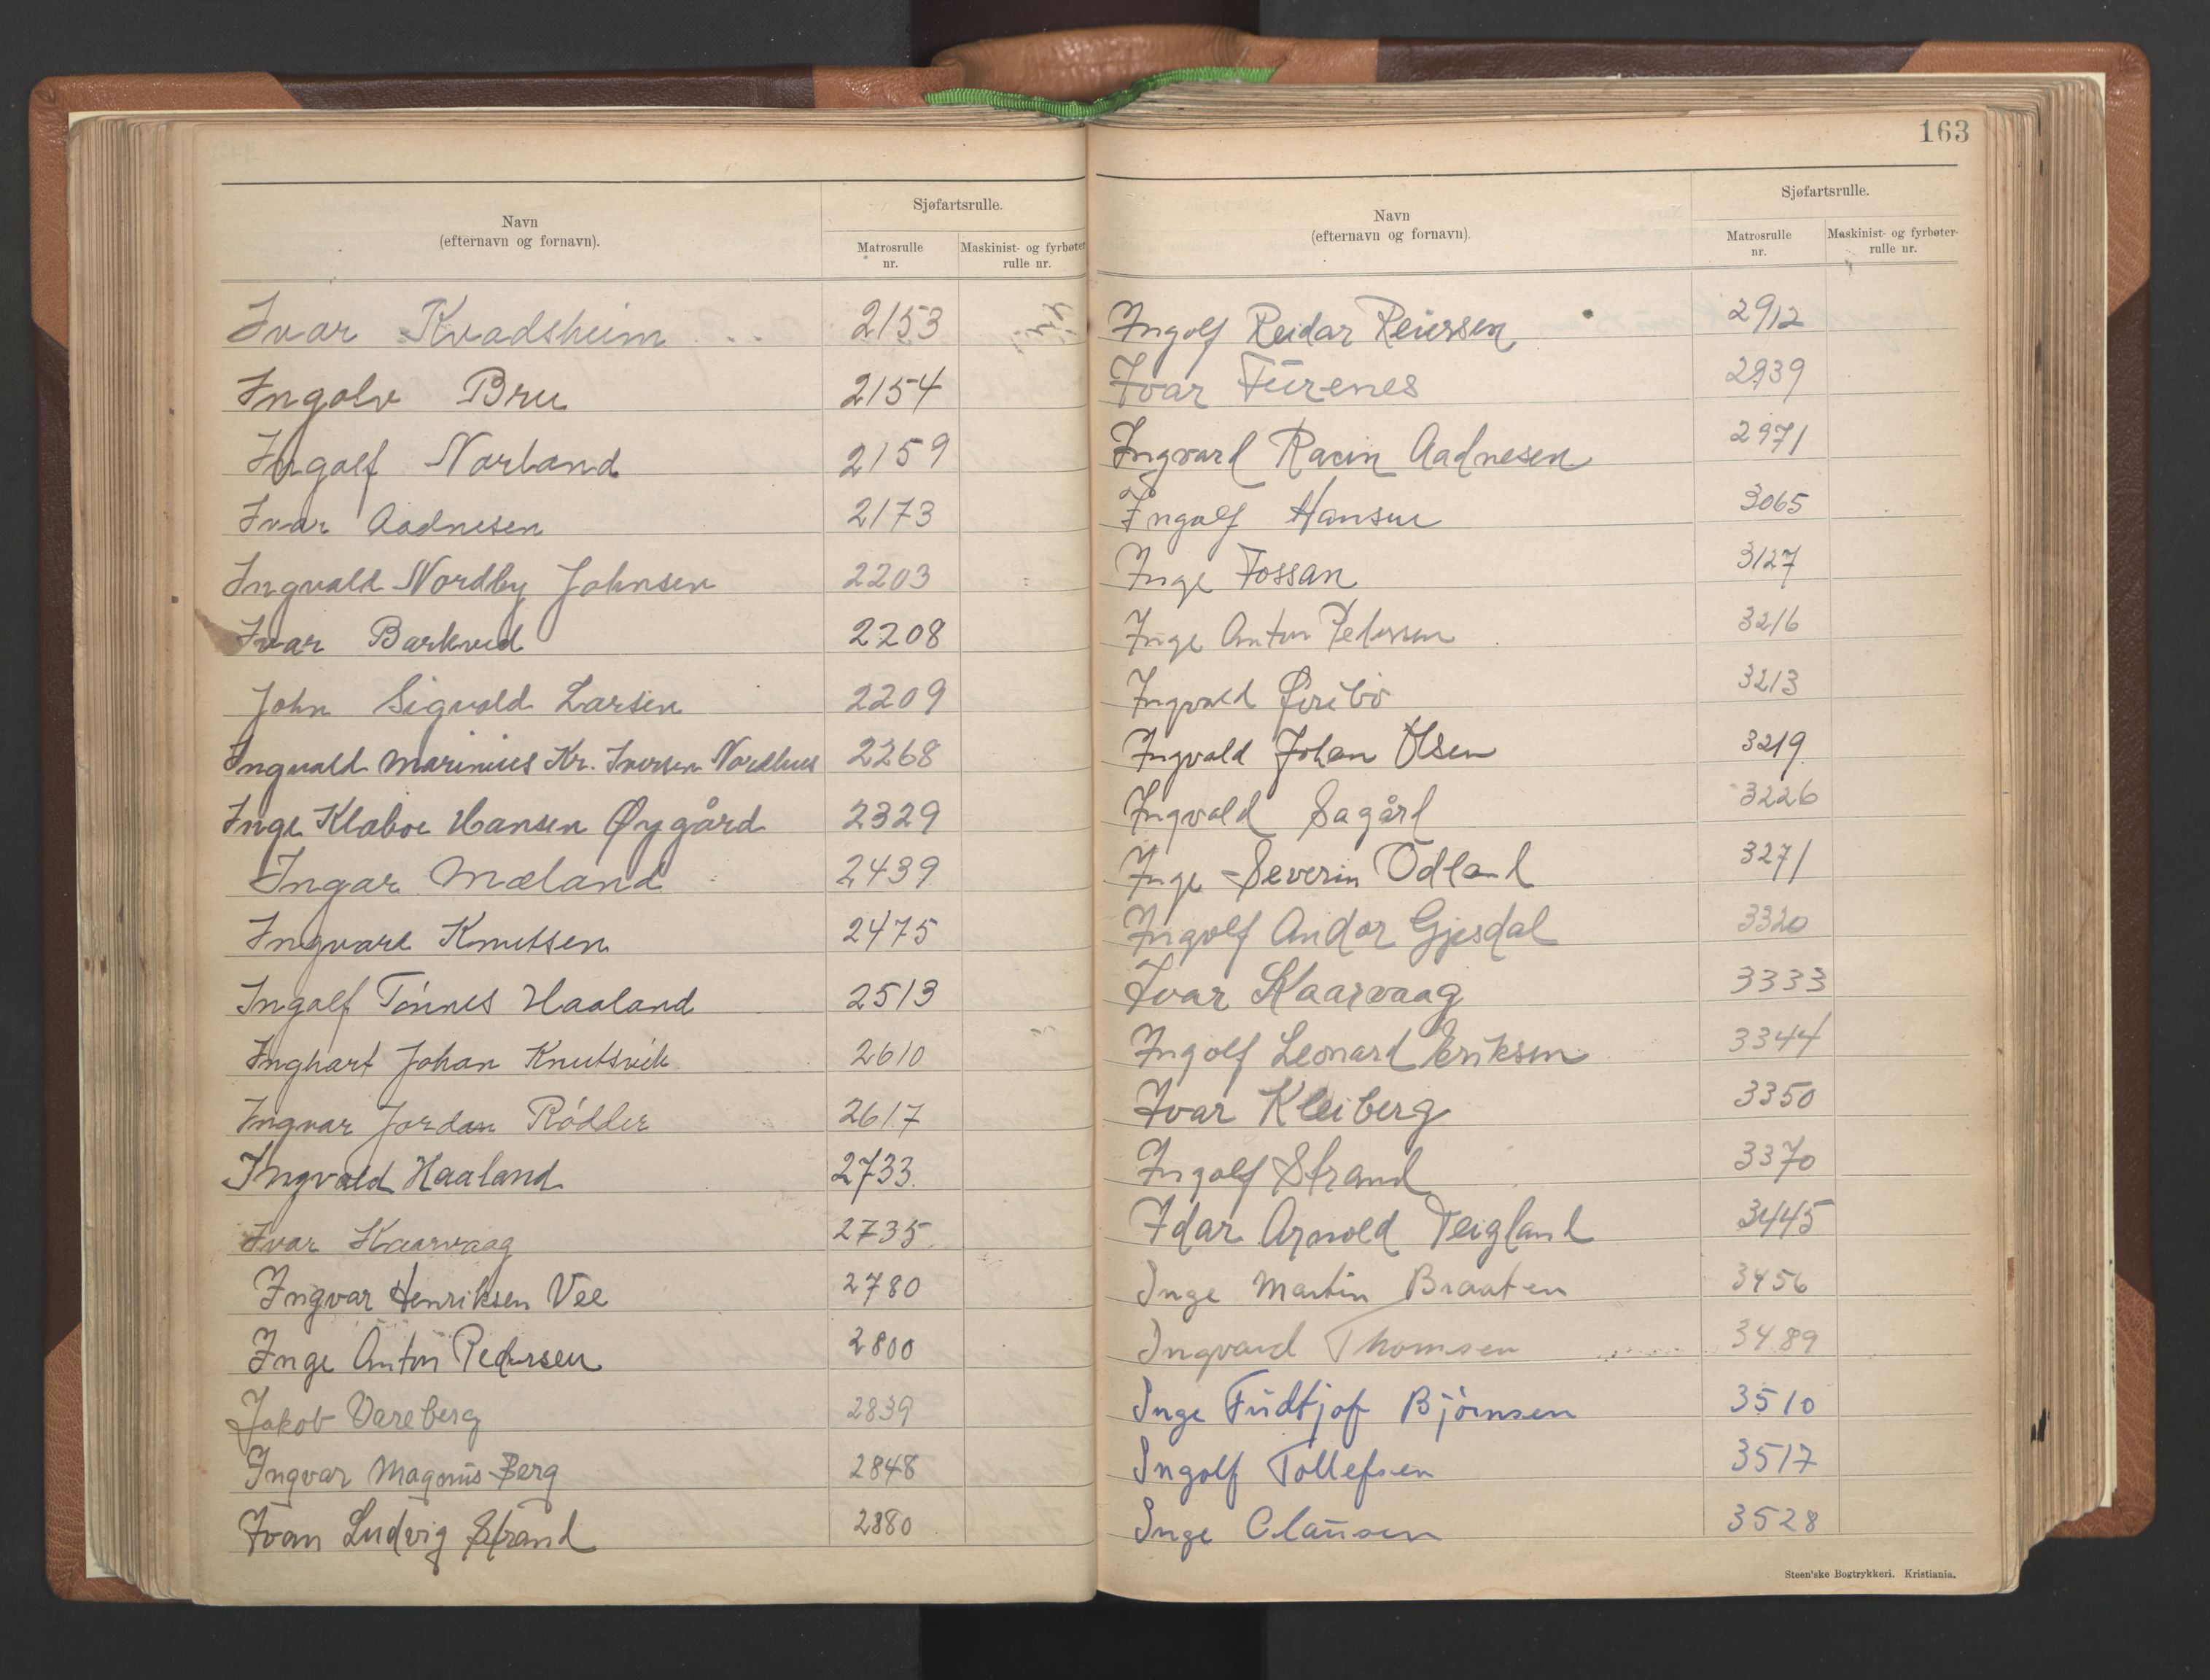 Navn
(efternavn og fornavn).
Sjøfartsrulle.
Matrosrulle
nr.
Maskinist- og fyrbøter
rulle nr.
Ivar Kvadsheim 2153
Ingolv Bru 2154
Ingolf Norland 2159
Ivar Aadnesen 2173
Ingvald Nordby Johnsen 2203
Ivar Barkved 2208
John Sigvald Larsen 2209
Ingvald Marinius Kr. Iversen Nordhus 2268
Inge Klaboe Hansen Øygård 2329
Ingar Mæland 2439
Ingvard Knutsen 2475
Ingolf Tónnes Haaland 2513
Inghart Johan Knutsvik 2610
Ingvar Jordan Ródder 2617
Ingvald Haaland 2733
Ivar Kaarvaag 2735
Ingvar Henriksen Vee 2780
Inge Anton Pedersen 2800
Jakob Vareberg 2839
Ingvar Magnus Berg 2848
Ivan Ludvig Strand 2880
163
Navn
(efternavn og fornavn).
Sjøfartsrulle.
Matrosrulle
nr.
Maskinist- og fyrbøter-
rulle nr.
Ingolf Reidar Reiersen 2912
Ivar Furenes 2939
Ingvard Aadnesen 2971
Ingolf Hansen 3065
Inge Fossan 3127
Inge Anton Pedersen 3216
Ingvald 3213
Ingvald Johan Olsen 3219
Ingvald Sagård 3226
Inge Severin Ødland 3271
Ingolf Andor Gjesdal 3320
Ivar Kaarvaag 3333
Ingolf Leonard Eriksen 3344
Ivar Kleiberg 3350
Ingolf Strand 3370
Idar Arnold Teigland 3445
Inge Martin Braaten 3456
Ingvard Thomsen 3489
Inge Fridtjof Bjórnsen 3510
Ingolf Tollefsen 3517
Inge Clausen 3528
Steen'ske Bogtrykkeri. Kristiania.